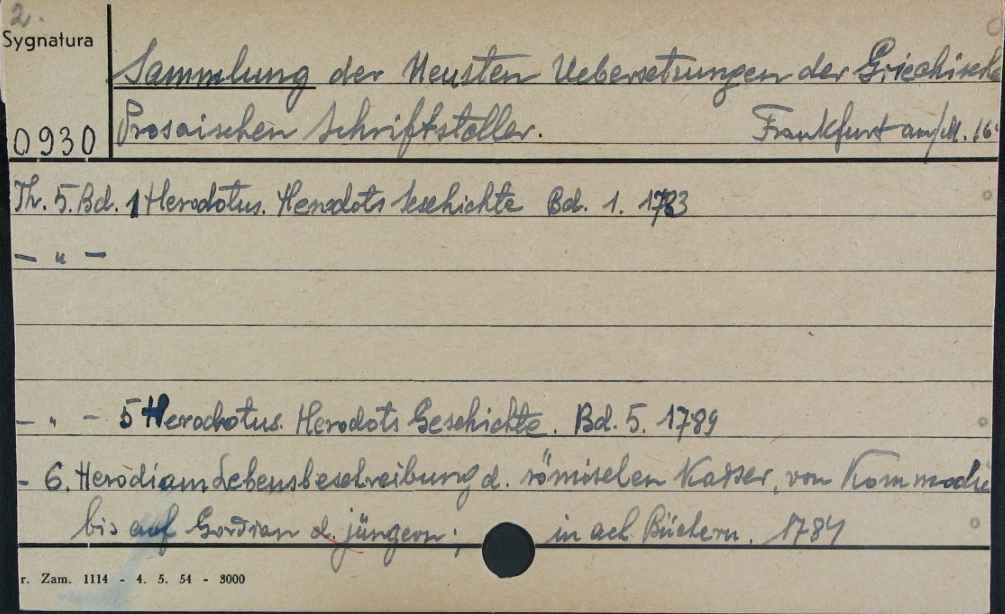 2.
Sygnatura
Sammlung der Neusten Uebersetzungen der Griechische
0930 Prosaischen Schriftsteller. Frankfurt am/M.
Th. 5. Bd. 1 Herodotus. Herodots Geschichte Bd. 1. 1783
— " —
- " - 5 Herodotus. Herodots Geschichte. Bd. 5. 1789
- 6. Herodiam Lebensbeschreibung d. römischen Kaiser, von Kommodu
bis auf Gordian d. jüngern; in ach Büchern. 1784
r. Zam. 1114 - 4. 5. 54 - 3000